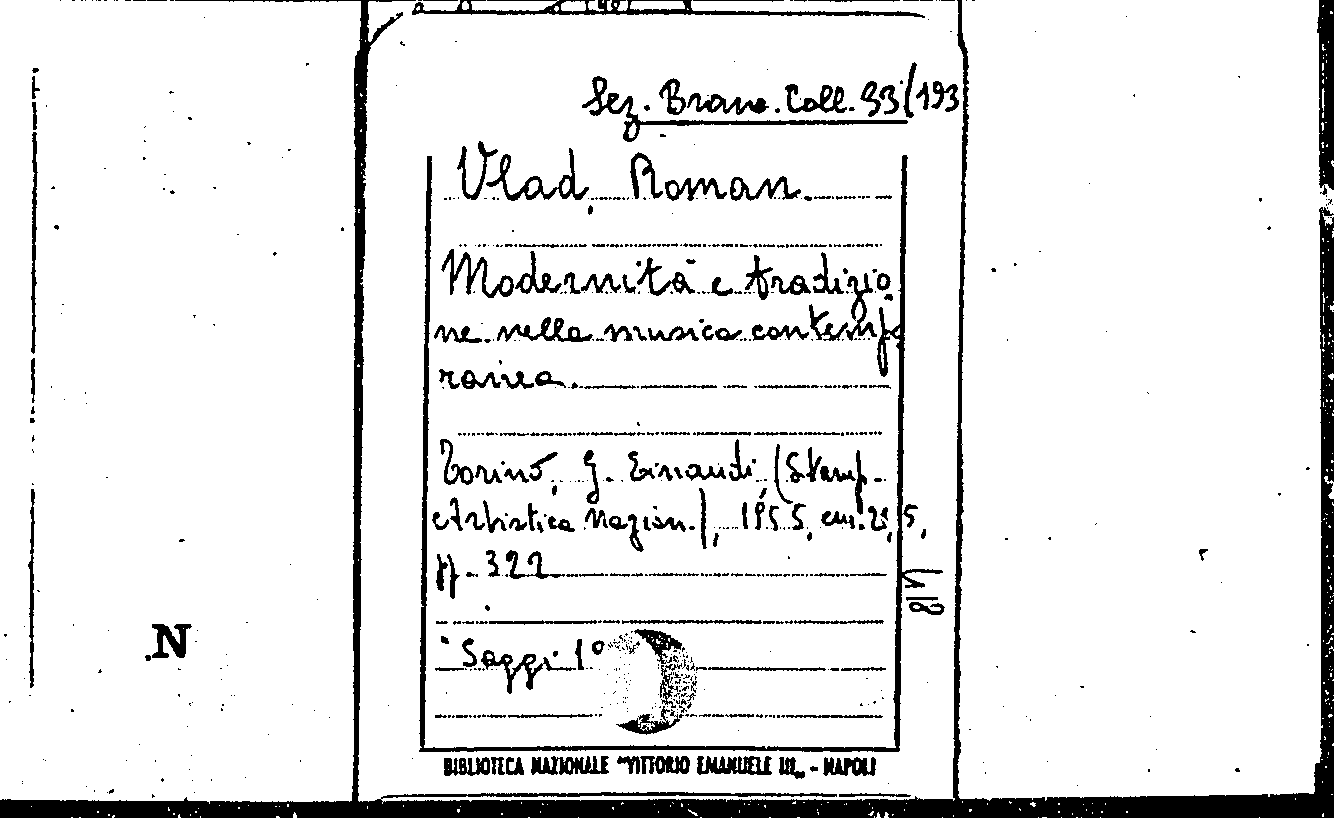 Sez. Branc. Coll. 33/193
Vlad, Roman.
Modernità e tradizio
ne nella musica contempo
ranea.
Torino, G. Einaudi, (Stamp.
Artistica Nazion.), 1955, cm. 21,5,
pp. 322
Saggi 1°
N
BIBLIOTECA NAZIONALE "VITTORIO EMANUELE III„ - NAPOLI